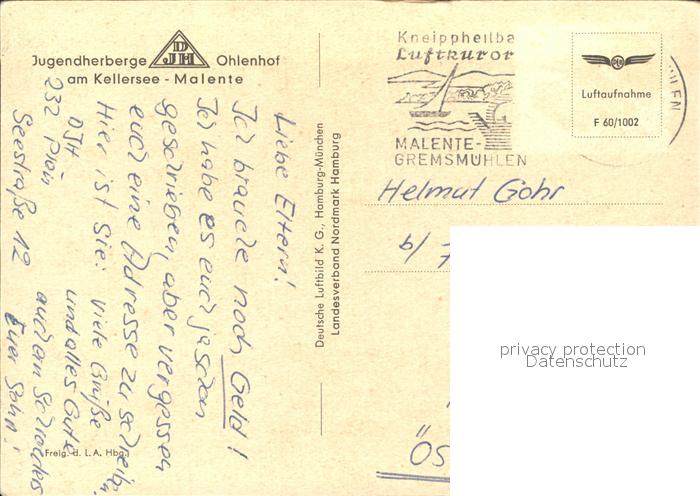 Jugendherberge DJH Ohlenhof
am Kellersee - Malente
Liebe Eltern!
Ich brauche noch Geld!
Ich habe es euch ja schon
geschrieben, aber vergessen
euch eine Adresse zu schreiben.
Hier ist Sie: Viele Grüße
DJH und alles Gute
232 Plön auch an
Seestraße 12 Euer Sohn!
Freig. d. L. A. Hbg.
Deutsche Luftbild K. G., Hamburg-München
Landesverband Nordmark Hamburg
Kneippheilba
Luftkuror
MALENTE-
GREMSMÜHLEN
Luftaufnahme
F 60/1002
Helmut Göhr
ÖS
privacy protection
Datenschutz